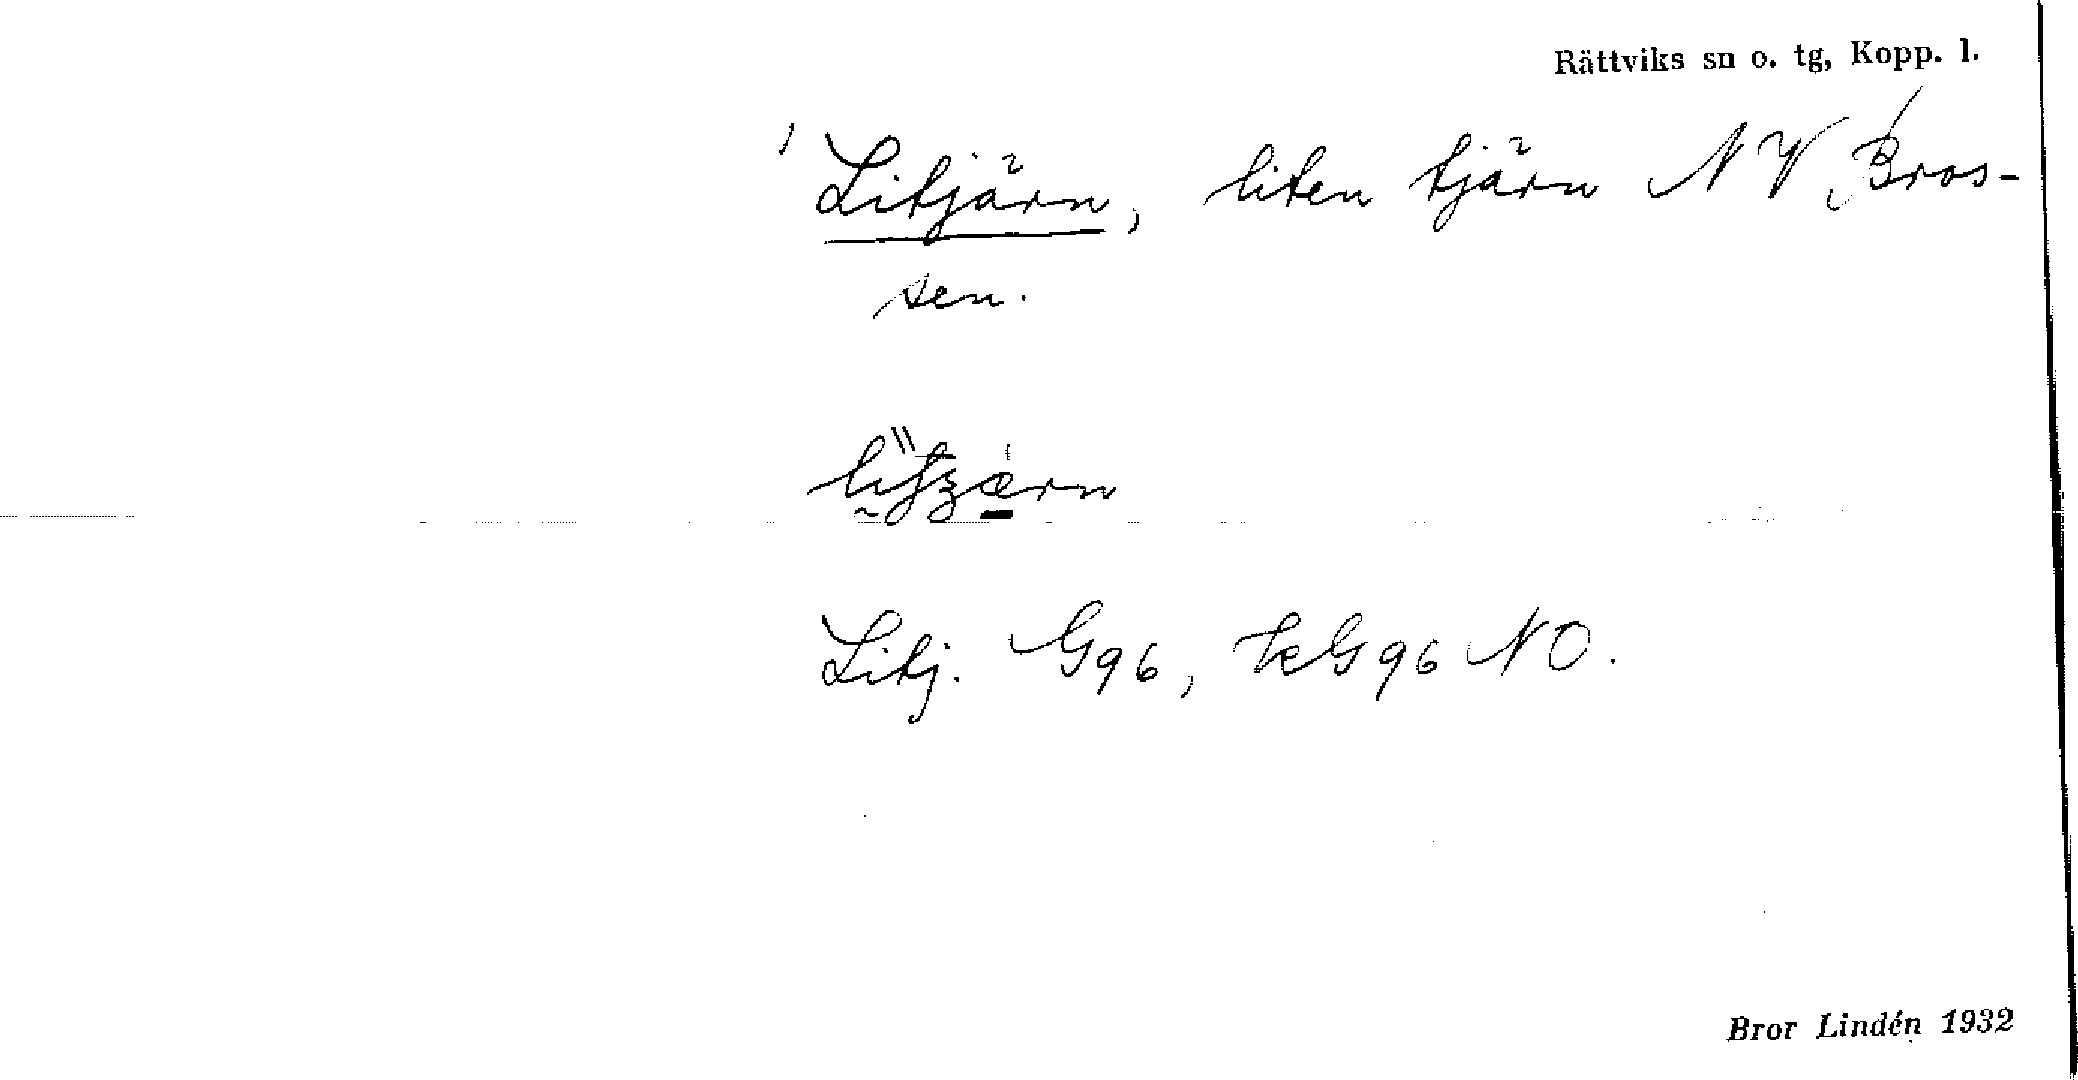 Rättviks sn o. tg, Kopp. l.
Litjärn, liten tjärn NV Bros-
sen.
Litj. G96, kG96 NO.
Bror Lindén 1932